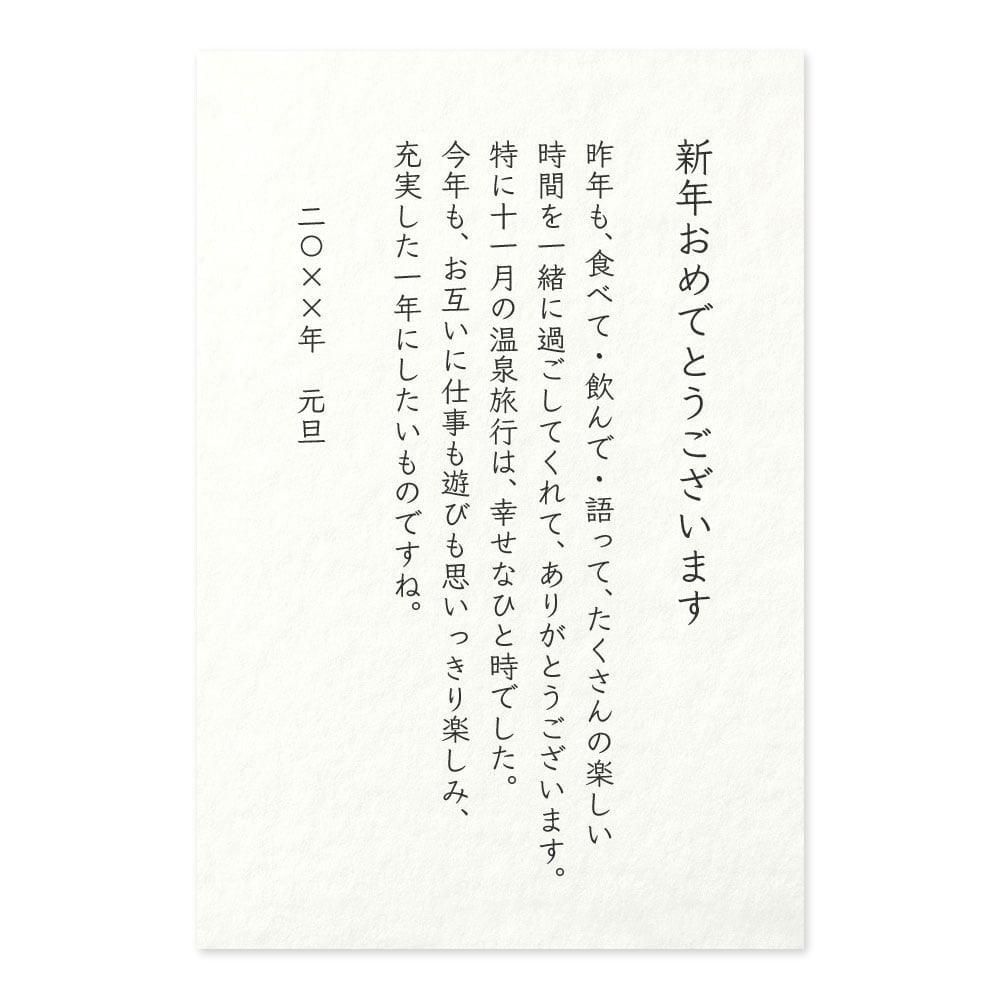 新年おめでとうございます
昨年も、食べて・飲んで・語って、たくさんの楽しい
時間を一緒に過ごしてくれて、ありがとうございます。
特に十一月の温泉旅行は、幸せなひと時でした。
今年も、お互いに仕事も遊びも思いっきり楽しみ、
充実した一年にしたいものですね。
二〇××年　元旦